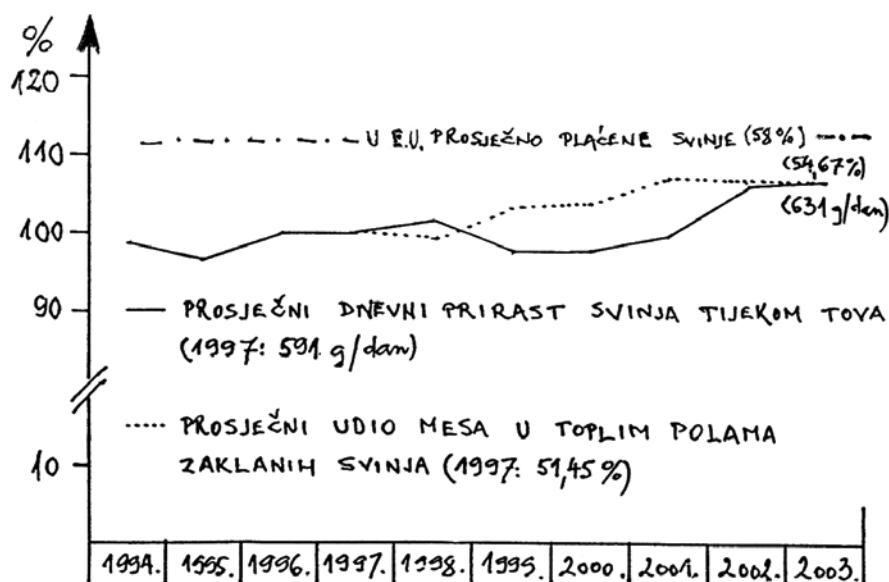 %
120
U E.U. PROSJEČNO PLAĆENE SVINJE (58%)
110
(54,67%)
100
(631 g/dan)
90
PROSJEČNI DNEVNI PRIRAST SVINJA TIJEKOM TOVA
(1997: 591 g/dan)
PROSJEČNI UDIO MESA U TOPLIM POLAMA
10
ZAKLANIH SVINJA (1997: 51,45%)
1994. 1995. 1996. 1997. 1998. 1999. 2000. 2001. 2002. 2003.